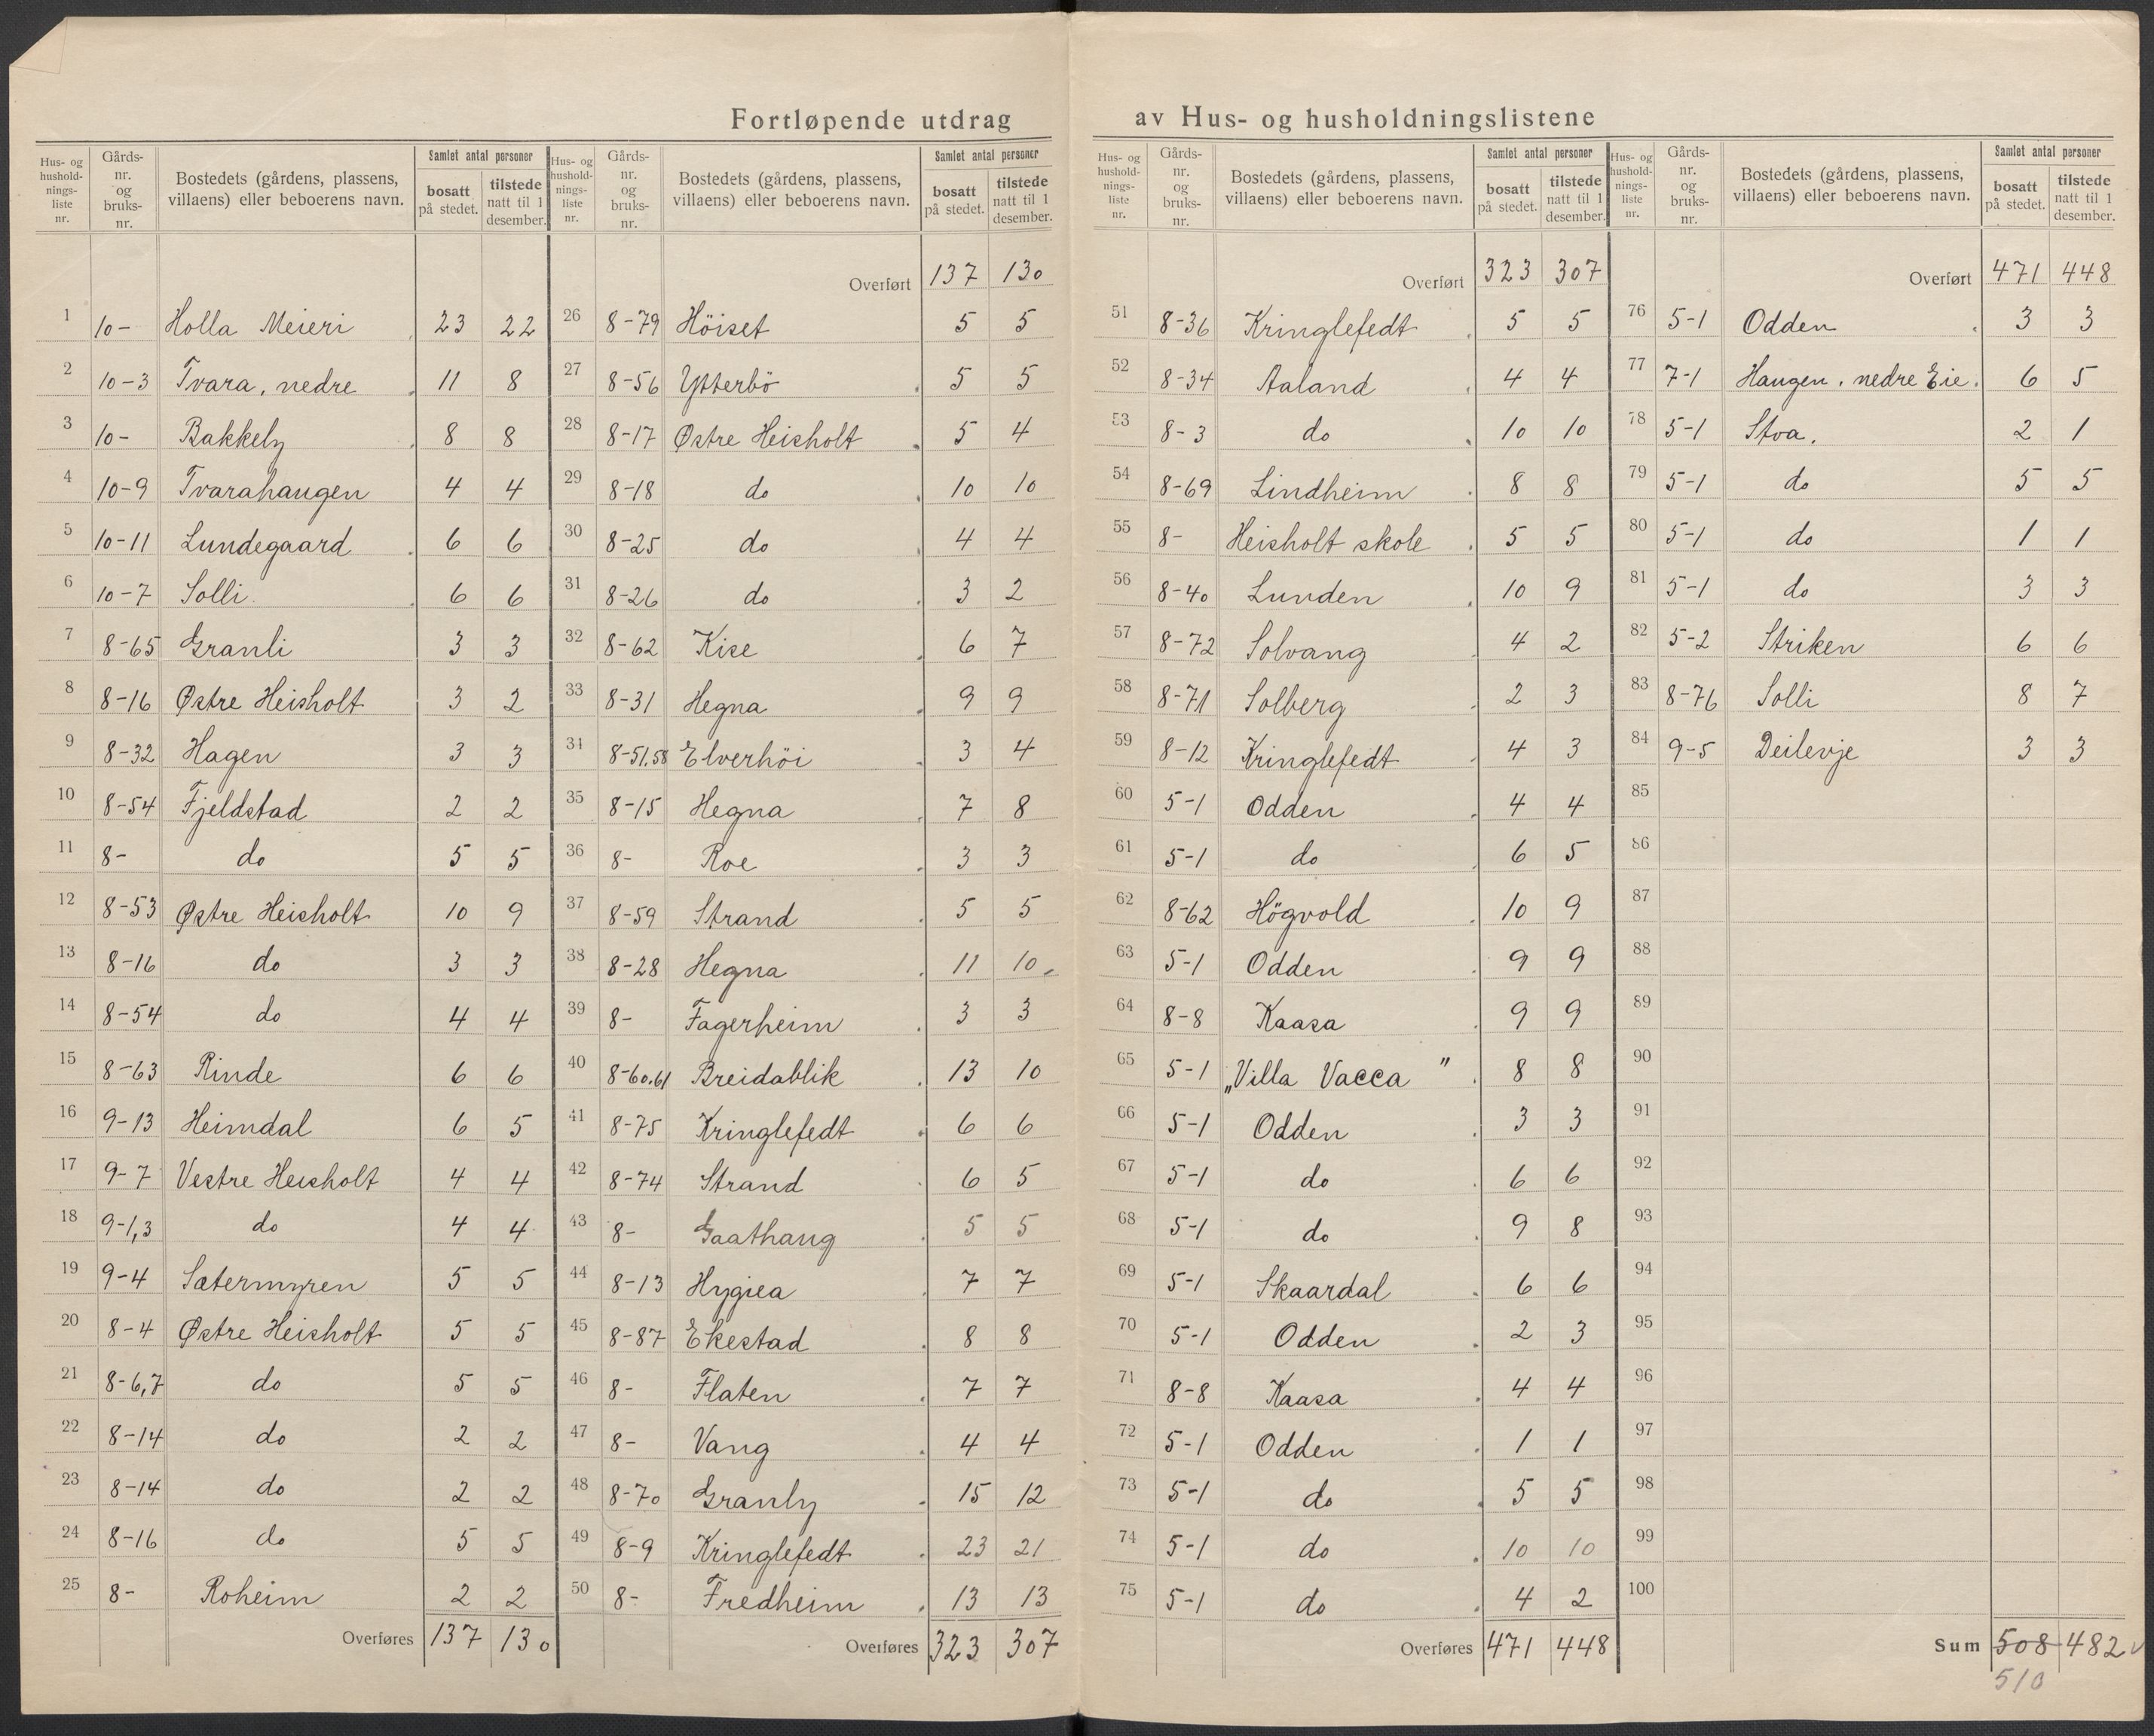 Fortløpende utdrag av Hus- og husholdningslistene
Hus- og husholdnings-liste nr. | Gårds-nr. og bruks-nr. | Bostedets (gårdens, plassens, villaens) eller beboerens navn. | Samlet antal personer | bosatt på stedet. | tilstede natt til 1 desember.
1 10- Holla Meieri 23 22
2 10-3 Tvara, nedre 11 8
3 10- Bakkely 8 8
4 10-9 Tvarahaugen 4 4
5 10-11 Lundegaard 6 6
6 10-7 Solli 6 6
7 8-65 Granli 3 3
8 8-16 Østre Heisholt 3 2
9 8-32 Hagen 3 3
10 8-54 Fjeldstad 2 2
11 8- do 5 5
12 8-53 Østre Heisholt 10 9
13 8-16 do 3 3
14 8-54 do 4 4
15 8-63 Rinde 6 6
16 9-13 Heimdal 6 5
17 9-7 Vestre Heisholt 4 4
18 9-1,3 do 4 4
19 9-4 Sætermyren 5 5
20 8-4 Østre Heisholt 5 5
21 8-6,7 do 5 5
22 8-14 do 2 2
23 8-14 do 2 2
24 8-16 do 5 5
25 8- Roheim 2 2
Overføres 137 130
Hus- og husholdnings-liste nr. | Gårds-nr. og bruks-nr. | Bostedets (gårdens, plassens, villaens) eller beboerens navn. | Samlet antal personer | bosatt på stedet. | tilstede natt til 1 desember.
Overført 137 130
26 8-79 Höiset 5 5
27 8-56 Ytterbö 5 5
28 8-17 Østre Heisholt 5 4
29 8-18 do 10 10
30 8-25 do 4 4
31 8-26 do 3 2
32 8-62 Kise 6 7
33 8-31 Hegna 9 9
34 8-51.58 Elverhöi 3 4
35 8-15 Hegna 7 8
36 8- Roe 3 3
37 8-59 Strand 5 5
38 8-28 Hegna 11 10
39 8- Fagerheim 3 3
40 8-60.61 Breidablik 13 10
41 8-75 Kringlefedt 6 6
42 8-74 Strand 6 5
43 8- Gaathaug 5 5
44 8-13 Hygiea 7 7
45 8-87 Ekestad 8 8
46 8- Flaten 7 7
47 8- Vang 4 4
48 8-70 Granly 15 12
49 8-9 Kringlefedt 23 21
50 8- Fredheim 13 13
Overføres 323 307
Hus- og husholdnings-liste nr. | Gårds-nr. og bruks-nr. | Bostedets (gårdens, plassens, villaens) eller beboerens navn. | Samlet antal personer | bosatt på stedet. | tilstede natt til 1 desember.
Overført 323 307
51 8-36 Kringlefedt 5 5
52 8-34 Aaland 4 4
53 8-3 do 10 10
54 8-69 Lindheim 8 8
55 8- Heisholt skole 5 5
56 8-40 Lunden 10 9
57 8-72 Solvang 4 2
58 8-71 Solberg 2 3
59 8-12 Kringlefedt 4 3
60 5-1 Odden 4 4
61 5-1 do 6 5
62 8-62 Högvold 10 9
63 5-1 Odden 9 9
64 8-8 Kaasa 9 9
65 5-1 „Villa Vacca" 8 8
66 5-1 Odden 3 3
67 5-1 do 6 6
68 5-1 do 9 8
69 5-1 Skaardal 6 6
70 5-1 Odden 2 3
71 8-8 Kaasa 4 4
72 5-1 Odden 1 1
73 5-1 do 5 5
74 5-1 do 10 10
75 5-1 do 4 2
Overføres 471 448
Hus- og husholdnings-liste nr. | Gårds-nr. og bruks-nr. | Bostedets (gårdens, plassens, villaens) eller beboerens navn. | Samlet antal personer | bosatt på stedet. | tilstede natt til 1 desember.
Overført 471 448
76 5-1 Odden 3 3
77 7-1 Haugen, nedre Eie. 6 5
78 5-1 Stva. 2 1
79 5-1 do 5 5
80 5-1 do 1 1
81 5-1 do 3 3
82 5-2 Striken 6 6
83 8-76 Solli 8 7
84 9-5 Deilevje 3 3
85
86
87
88
89
90
91
92
93
94
95
96
97
98
99
100
Sum 508 482
510